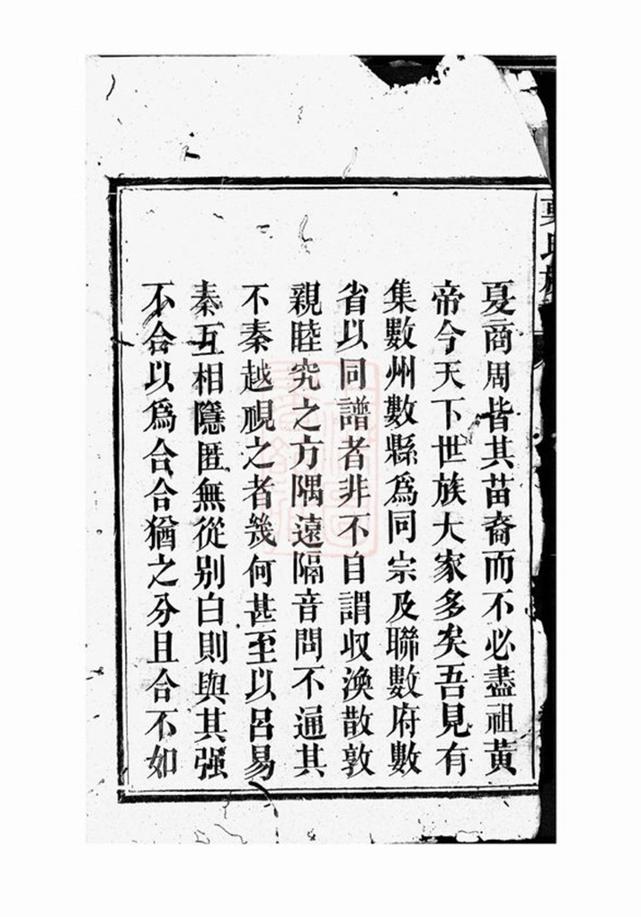 夏商周皆其苗裔而不必盡祖黃
帝今天下世族大家多矣吾見有
集數州數縣爲同宗及聯數府數
省以同譜者非不自謂収渙散敦
親睦究之方隅遠隔音問不通其
不秦越視之者幾何甚至以呂易
秦互相隱匿無從别白則與其强
不合以爲合合猶之分且合不如